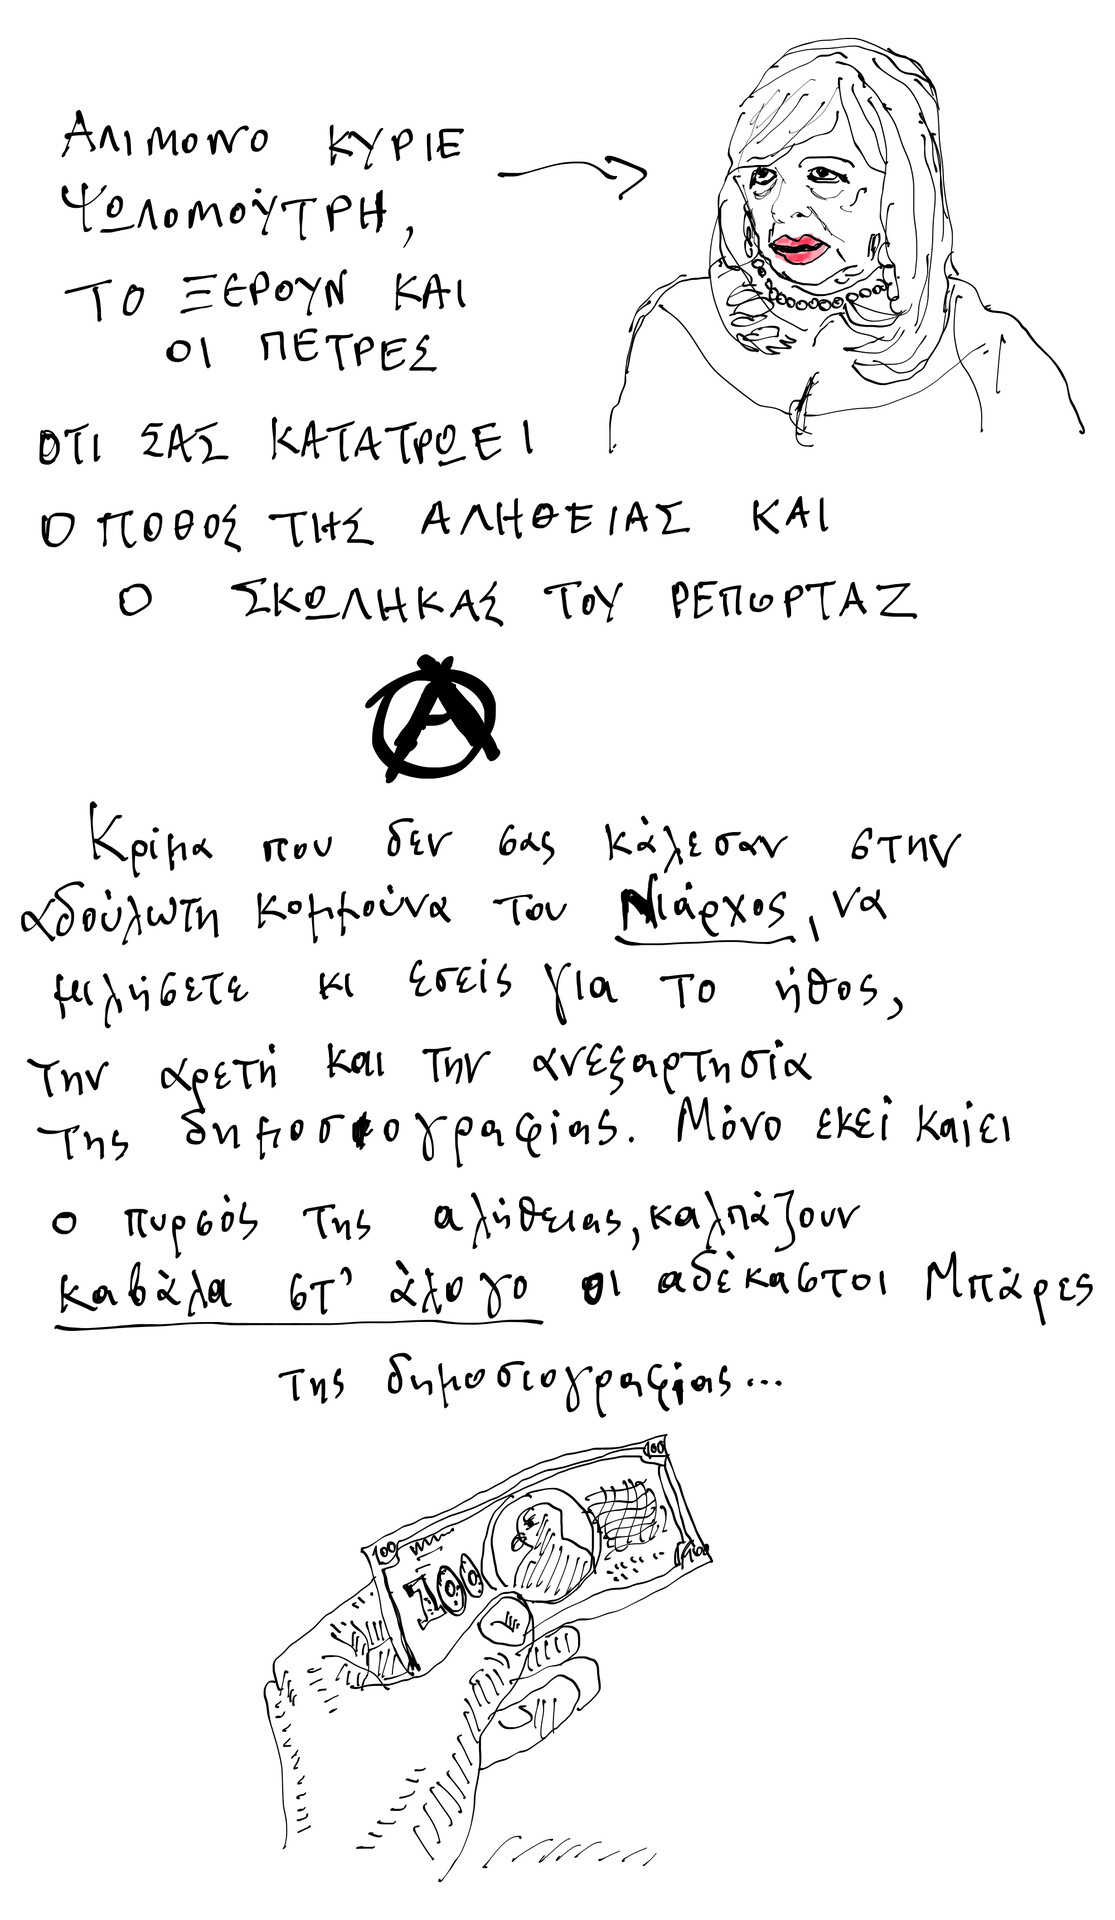 ΑΛΙΜΟΝΟ ΚΥΡΙΕ
ΨΩΛΟΜΟΎΤΡΗ,
ΤΟ ΞΕΡΟΥΝ ΚΑΙ
ΟΙ ΠΕΤΡΕΣ
ΟΤΙ ΣΑΣ ΚΑΤΑΤΡΩΕΙ
Ο ΠΟΘΟΣ ΤΗΣ ΑΛΗΘΕΙΑΣ ΚΑΙ
Ο ΣΚΩΛΗΚΑΣ ΤΟΥ ΡΕΠΟΡΤΑΖ
A
Κρίμα που δεν σας κάλεσαν στην
αδούλωτη κομμούνα του Νιάρχος, να
μιλήσετε κι εσείς για το ήθος,
την αρετή και την ανεξαρτησία
της δημοσιογραφίας. Μόνο εκεί καίει
ο πυρσός της αλήθειας, καλπάζουν
καβάλα στ' άλογο οι αδέκαστοι Μπάρες
της δημοσιογραφίας...
100
100
100
100